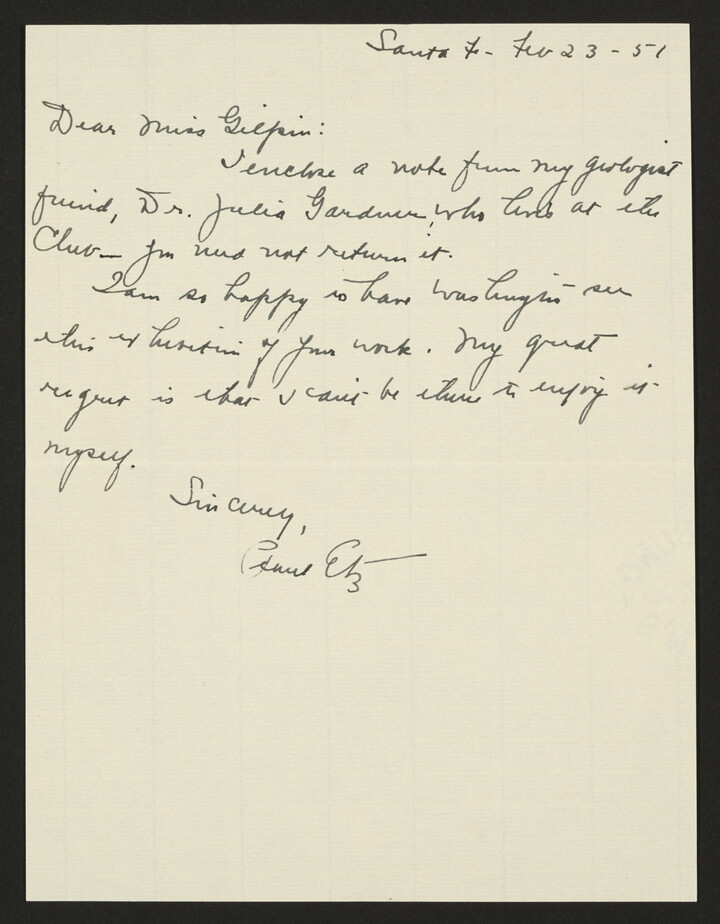 Santa F- Feb 23-51
Dear Miss Gilpin:
I enclose a note from my geologist
friend, Dr. Julia Gardner, who lives at the
Club— You need not return it.
I am so happy to have Washington see
this exhibition of your work. My great
regret is that I can't be there to enjoy it
myself.
Sincerely,
Etz